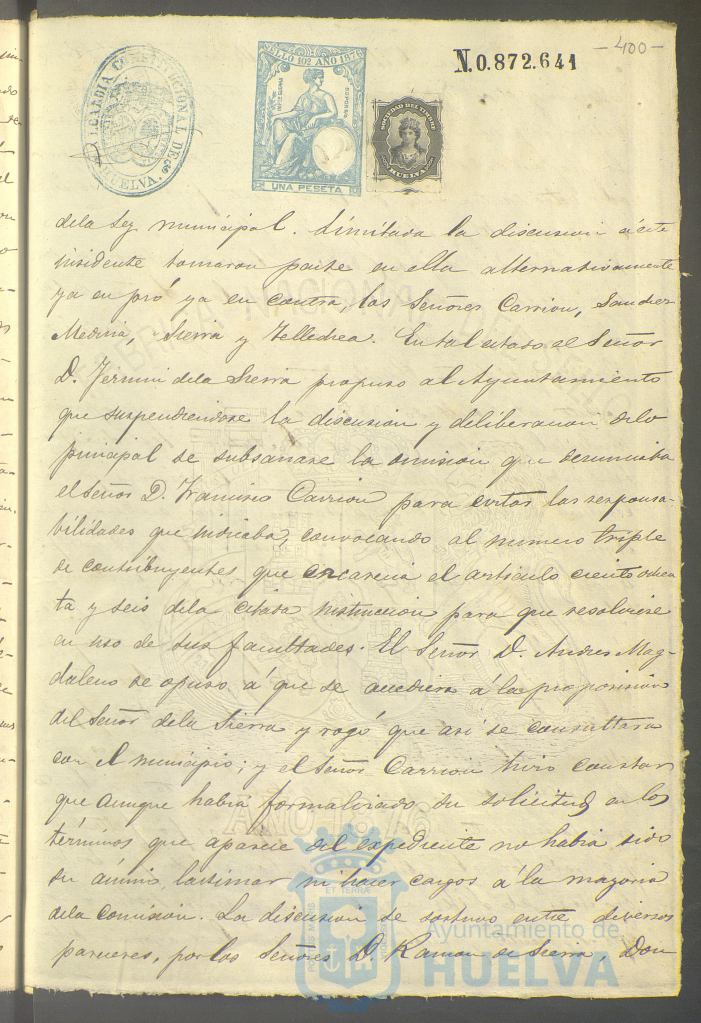 -400-
N.0.872.641
ALCALDIA CONSTITUCIONAL DE
HUELVA.
SELLO 10º AÑO 1876
UNA PESETA
SOCIEDAD DEL TIMBRE
HUELVA
dela Ley municipal. Limitada la discusion á este
insidente tomaron parte en ella alternativamente
ya en pró ya en contra, los Señores Carrion, Sanchez
Medina, Sierra y Telledrea. En tal estado el Señor
D. Fermin dela Sierra propuso al Ayuntamiento
que suspendiendose la discusion y deliberacion delo
principal se subsanase la omision que denunciaba
el Señor D. Francisco Carrion para evitar las responsa-
bilidades que indicaba, convocando al numero triple
de contribuyentes que encarecia el articulo ciento ochen
ta y seis dela citada instruccion para que resolviese
en uso de sus facultades. El Señor D. Andres Mag-
daleno se opuso á que se accediera á la proposicion
del Señor dela Sierra y rogó que asi se consultara
con el municipio; y el Señor Carrion hizo constar
que aunque habia formalizado su solicitud en los
términos que aparece del expediente no habia sido
su ánimo lastimar ni hacer cargos á la mayoria
dela comision. La discusion se sostuvo entre diversos
pareceres, por los Señores D. Ramon de Sierra, Don
AÑO 1876
Ayuntamiento de
HUELVA